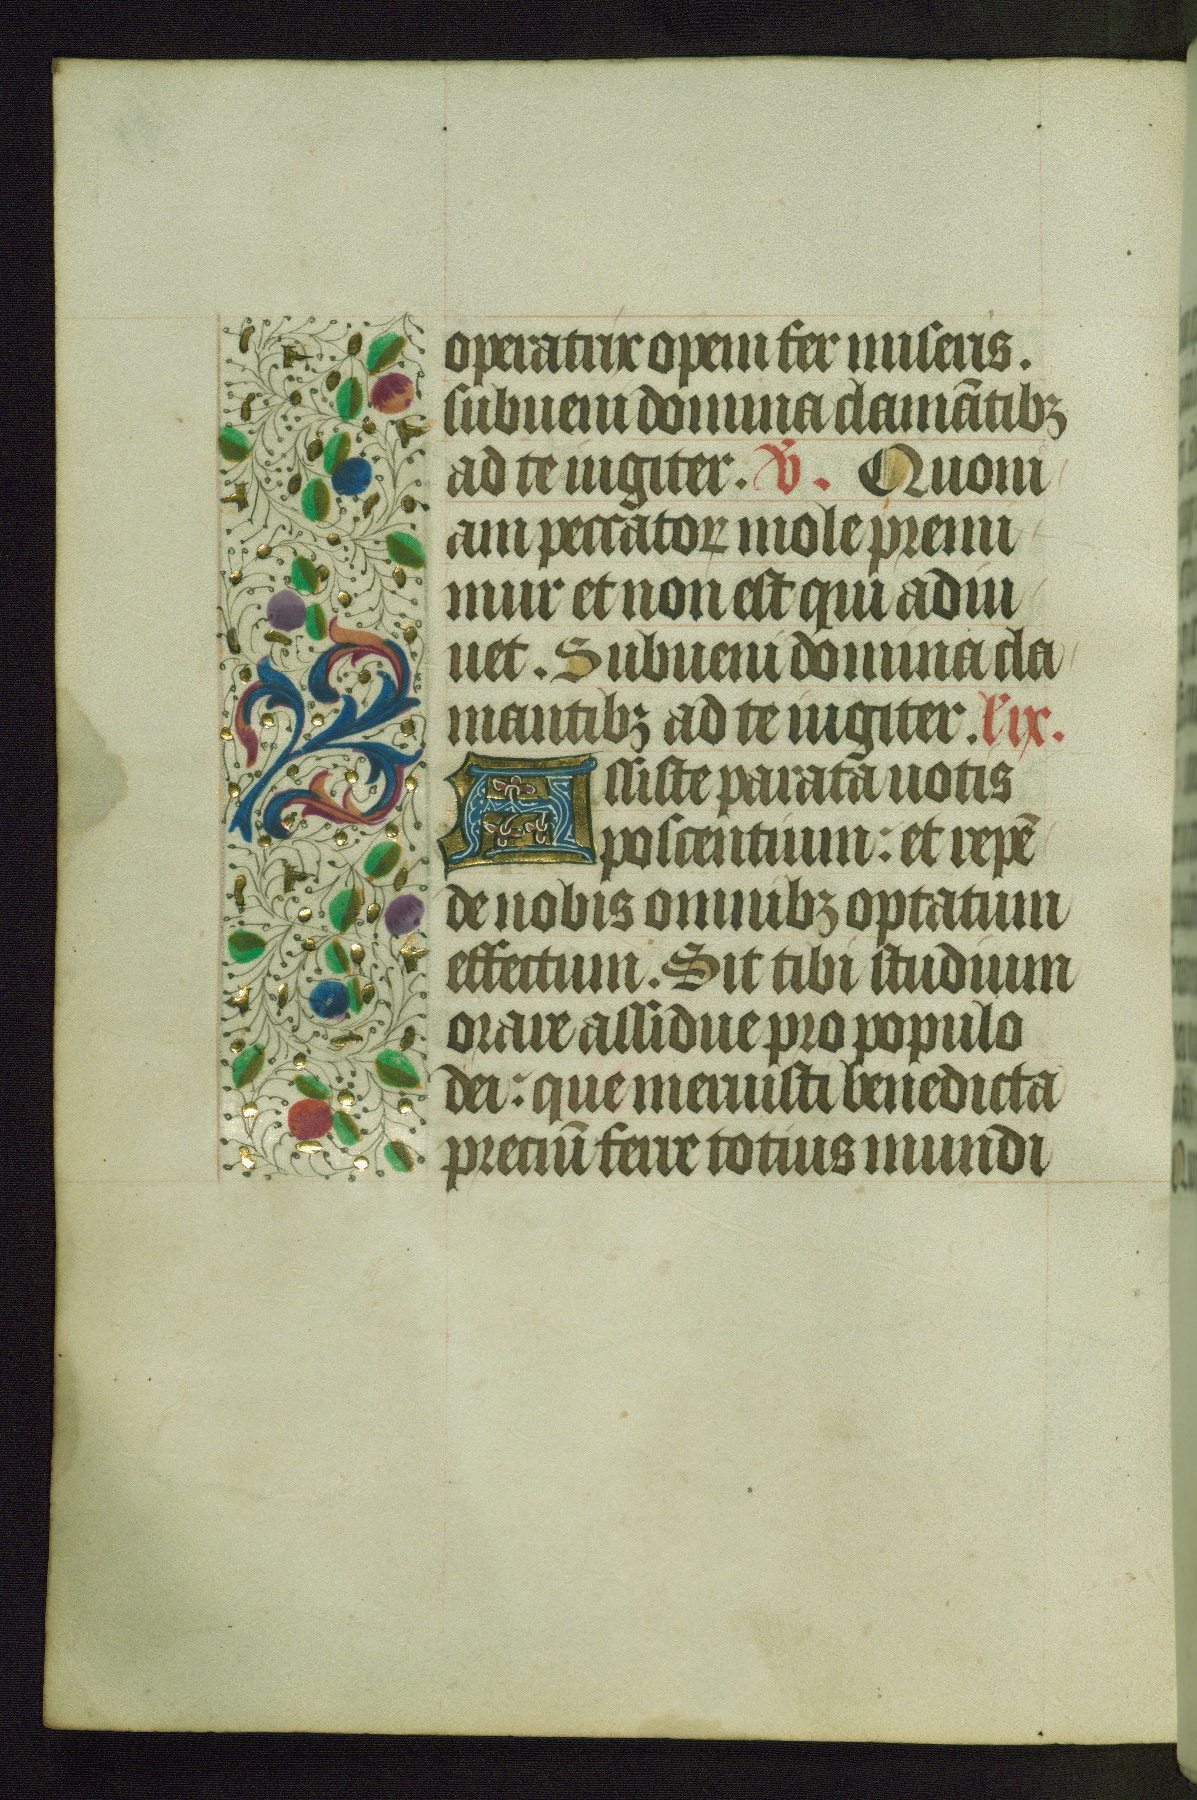 operatrix opem fer miseris.
subueni domina clamãtibꝫ
ad te iugiter. V̄. Quoni
am peccatoꝝ mole premi
mur et non est qui adiu
uet. Subueni domina cla
mantibꝫ ad te iugiter. l' ix.
Assiste parata uotis
poscentium: et repẽ
de nobis omnibꝫ optatum
effectum. Sit tibi studium
orare assidue pro populo
dei: que meruisti benedicta
preciũ ferre totius mundi